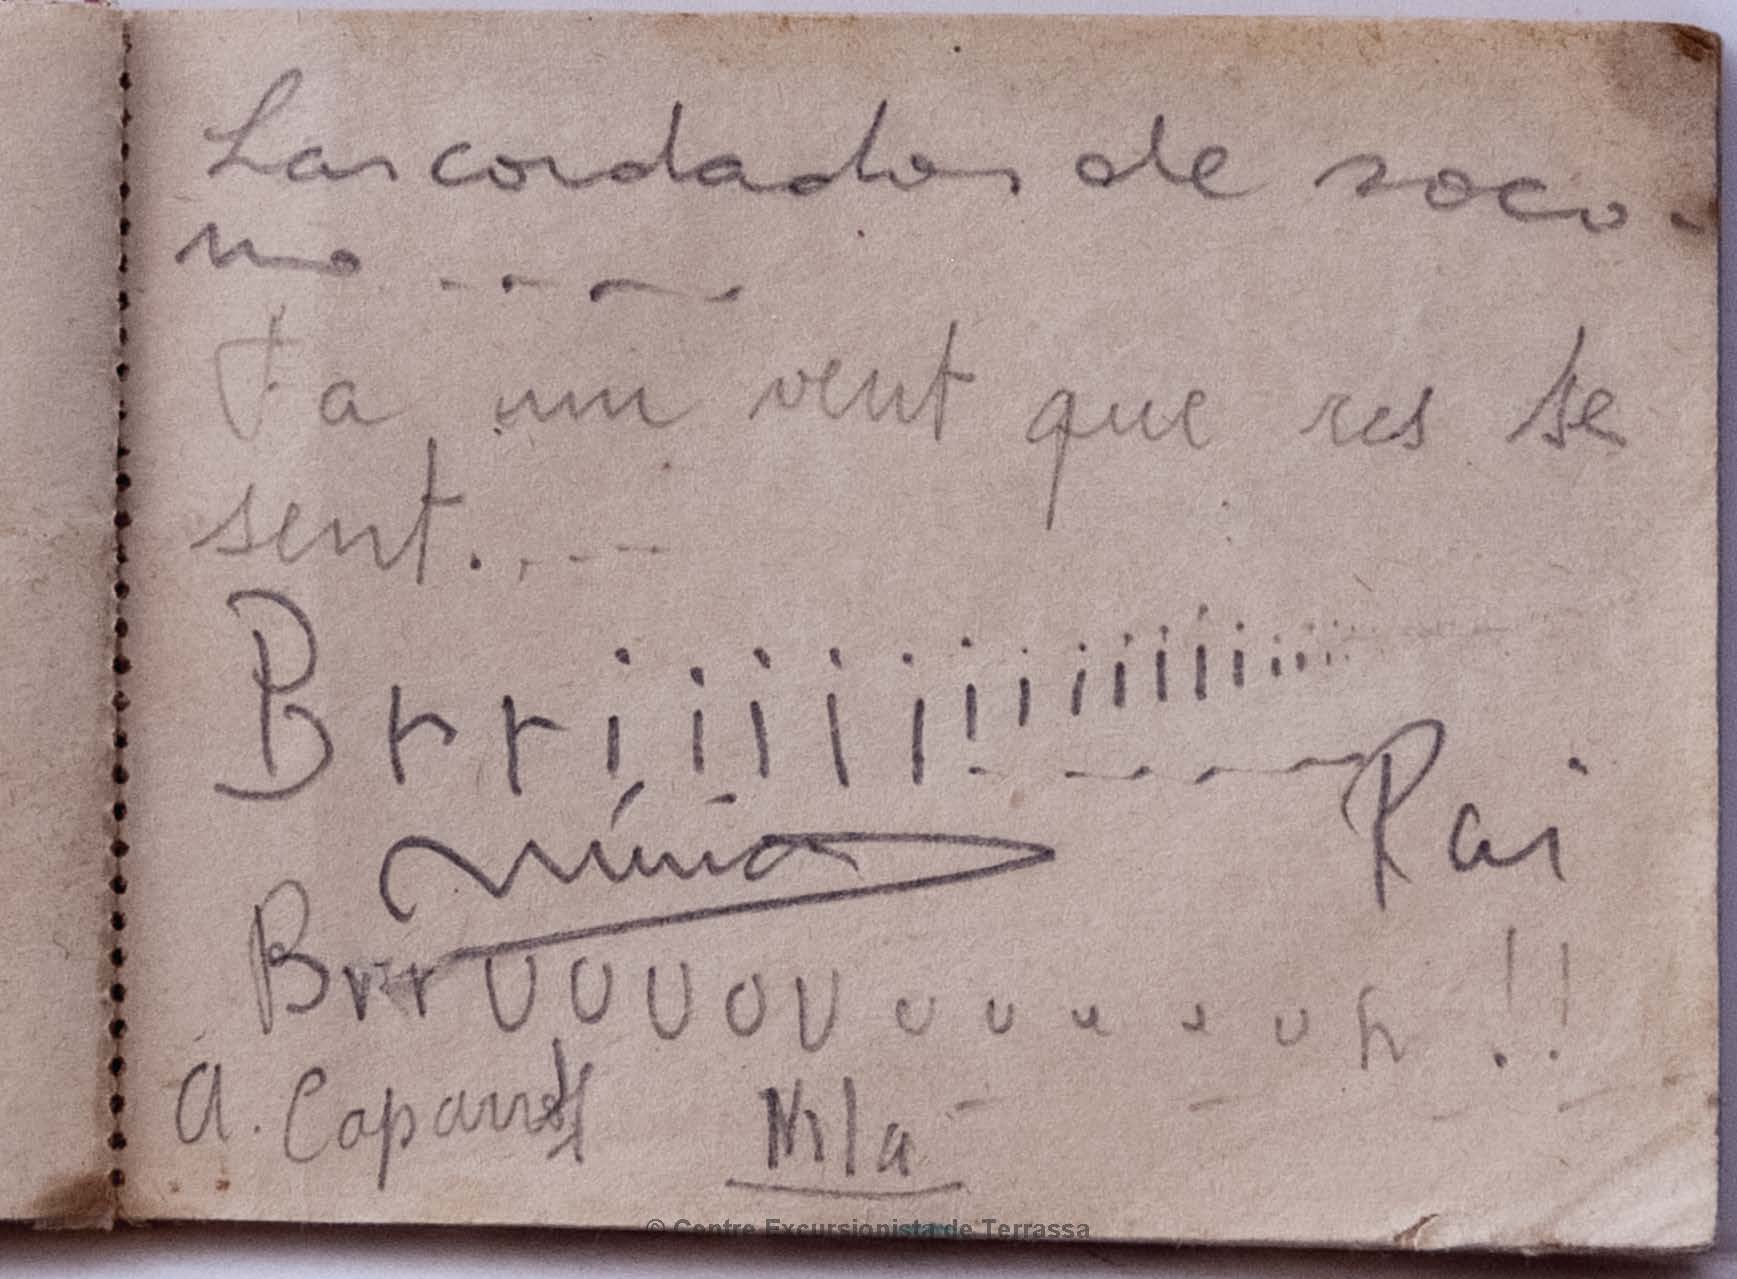 Las cordadas de soco-
mo ....
Fa un vent que res se
sent....
Brriiiiiiiiiiiiiiiiii
Núria Pai
BrrUUUUUuuuuuuh!!
A. Caparrós Nila
© Centre Excursionista de Terrassa